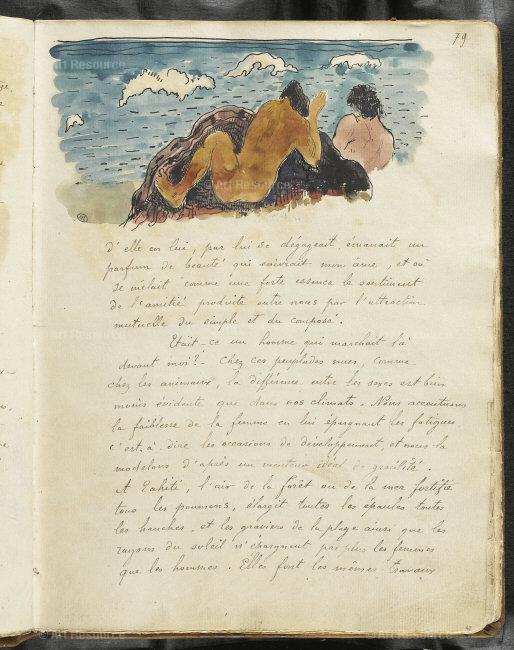 79
d'elle en lui, par lui se dégageait, émanait un
parfum de beauté qui enivrait mon âme, et où
se mêlait comme une forte essence le sentiment
de l'amitié produite entre nous par l'attraction
mutuelle du simple et du composé.
Etait-ce un homme qui marchait là
devant moi? - Chez ces peuplades nues, comme
chez les animaux, la différence entre les sexes est bien
moins évidente que dans nos climats. Nous accentuons
la faiblesse de la femme en lui épargnant les fatigues
c'est à dire les occasions de développement, et nous la
modelons d'après un menteur idéal de gracilité.
A Tahiti, l'air de la forêt ou de la mer fortifie
tous les poumons, élargit toutes les épaules toutes
les hanches, et les graviers de la plage ainsi que les
rayons du soleil n'épargnent pas plus les femmes
que les hommes. Elles font les mêmes travaux